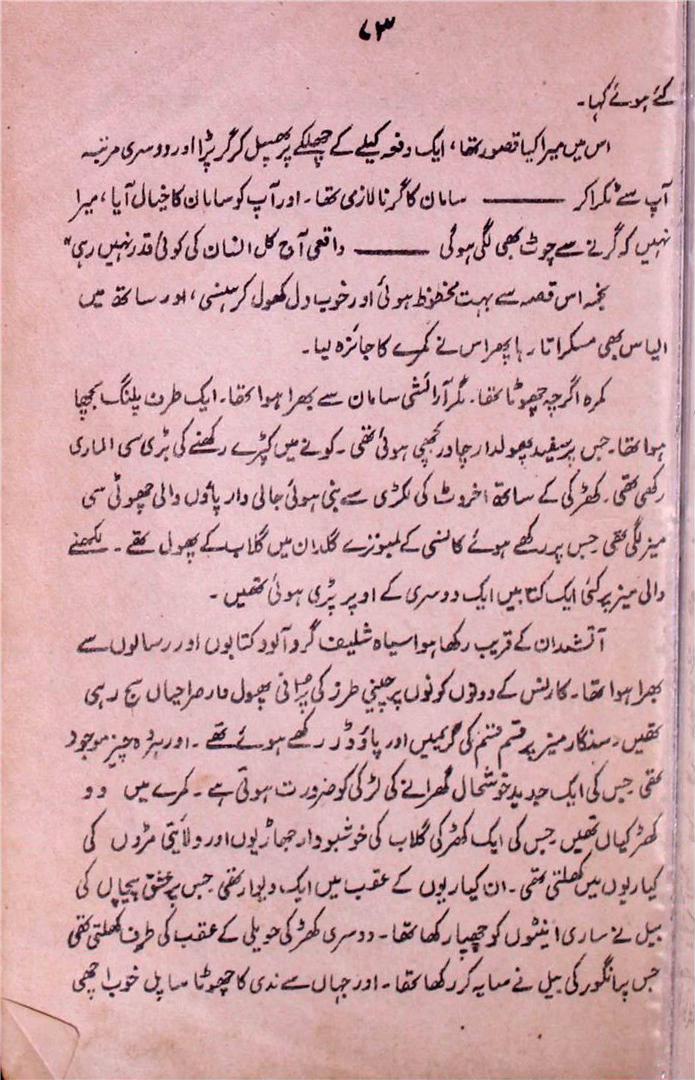 ۷۳
گئے ہوئے کہا۔
اس میں میرا کیا قصور تھا، ایک دفعہ کیلے کے چھلکے پر پھسل کر گر پڑا اور دوسری مرتبہ
آپ سے ٹکرا کر ——— سامان کا گرنا لازی تھا۔ اور آپ کو سامان کا خیال آیا، میرا
نہیں کہ گرنے سے چوٹ بھی لگی ہوگی ——— واقعی آج کل انسان کی کوئی قدر نہیں رہی"
نجمہ اس قصہ سے بہت محظوظ ہوئی اور خوب دل کھول کر ہنسی، اور ساتھ میں
الیاس بھی مسکراتا رہا پھر اس نے کمرے کا جائزہ لیا۔
کمرہ اگرچہ چھوٹا تھا۔ مگر آرائشی سامان سے بھرا ہوا تھا۔ ایک طرف پلنگ بچھا
ہوا تھا۔ جس پر سفید پھولدار چادر بچھی ہوئی تھی۔ کونے میں کپڑے رکھنے کی بڑی سی الماری
رکھی تھی۔ کھڑکی کے ساتھ اخروٹ کی لکڑی سے بنی ہوئی جالی دار پاؤں والی چھوٹی سی
میز لگی تھی جس پر رکھے ہوئے کانسی کے لمبوترے گلدان میں گلاب کے پھول تھے۔ لکھنے
والی میز پر کئی ایک کتابیں ایک دوسری کے اوپر پڑی ہوئی تھیں۔
آتشدان کے قریب رکھا ہوا سیاہ شلیف گرد آلود کتابوں اور رسالوں سے
بھرا ہوا تھا۔ کارنس کے دونوں کونوں پر چینی طرز کی پرانی پھول دار صراحیاں سج رہی
تھیں۔ سنگار میز پر قسم قسم کی کریمیں اور پاؤڈر رکھے ہوئے تھے۔ اور ہر وہ چیز موجود
تھی جس کی ایک جدید خوشحال گھرانے کی لڑکی کو ضرورت ہوتی ہے۔ کمرے میں دو
کھڑکیاں تھیں جس کی ایک کھڑکی گلاب کی خوشبودار جھاڑیوں اور ولایتی مٹروں کی
کیاریوں میں کھلتی تھی۔ ان کیاریوں کے عقب میں ایک دیوار تھی جس پر عشق پیچاں کی
بیل نے ساری اینٹوں کو چھپا رکھا تھا۔ دوسری کھڑکی حویلی کے عقب کی طرف کھلتی تھی
جس پر انگور کی بیل نے سایہ کر رکھا تھا۔ اور جہاں سے ندی کا چھوٹا سا پل خوب اچھی